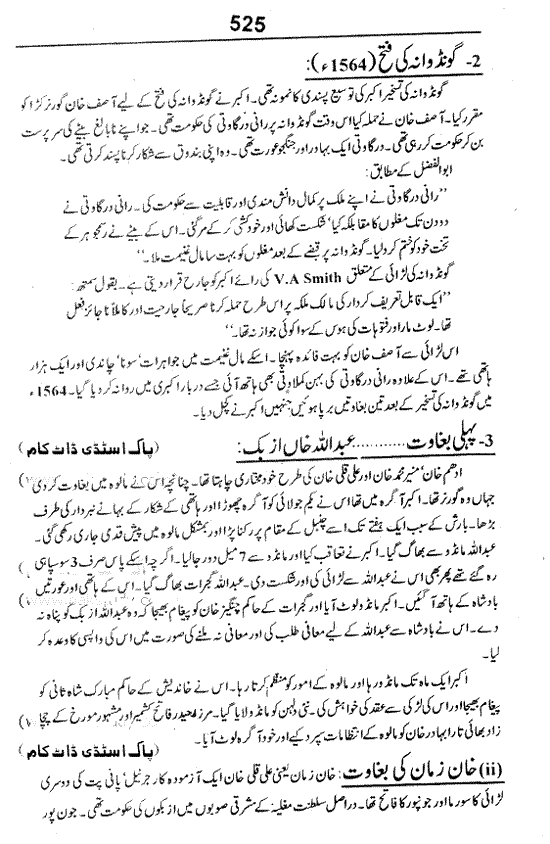 525
2- گونڈوانہ کی فتح (1564ء):
گونڈوانہ کی تسخیر اکبر کی توسیع پسندی کا نمونہ تھی۔ اکبر نے گونڈوانہ کی فتح کے لیے آصف خان گورنر کڑا کو
مقرر کیا۔ آصف خان نے حملہ کیا اس وقت گونڈوانہ پر رانی درگاوتی کی حکومت تھی۔ جو اپنے نابالغ بیٹے کی سرپرست
بن کر حکومت کر رہی تھی۔ درگاوتی ایک بہادر اور جنگجو عورت تھی۔ وہ اپنی بندوق سے شکار کرنا پسند کرتی تھی۔
ابوالفضل کے مطابق:
''رانی درگاوتی نے اپنے ملک پر کمال دانش مندی اور قابلیت سے حکومت کی۔ رانی درگاوتی نے
دو دن تک مغلوں کا مقابلہ کیا' شکست کھائی اور خودکشی کر کے مر گئی۔ اس کے بیٹے نے رسم جوہر کے
تحت خود کو ختم کر لیا۔ گونڈوانہ پر قبضے کے بعد مغلوں کو بہت سا مال غنیمت ملا۔''
گونڈوانہ کی لڑائی کے متعلق V.A Smith کی رائے اکبر کو جارح قرار دیتی ہے۔ بقول سمتھ:
''ایک قابل تعریف کردار کی مالک ملکہ پر اس طرح حملہ کرنا صریحاً جارحیت اور کاملاً ناجائز فعل
تھا۔ لوٹ مار اور فتوحات کی ہوس کے سوا کوئی جواز نہ تھا۔''
اس لڑائی سے آصف خان کو بہت فائدہ پہنچا۔ اسکے مال غنیمت میں جواہرات' سونا' چاندی اور ایک ہزار
ہاتھی تھے۔ اس کے علاوہ رانی درگاوتی کی بہن کملاوتی بھی ہاتھ آئی جسے دربار اکبری میں روانہ کر دیا گیا۔ 1564ء
میں گونڈوانہ کی تسخیر کے بعد تین بغاوتیں برپا ہوئیں جنہیں اکبر نے کچل دیا۔
3- پہلی بغاوت............عبداللہ خاں ازبک: (پاک اسٹڈی ڈاٹ کام)
ادھم خان' منیر محمد خان اور علی قلی خان کی طرح خودمختاری چاہتا تھا۔ چنانچہ اس نے مالوہ میں بغاوت کر دی
جہاں وہ گورنر تھا۔ اکبر آگرہ میں تھا اس نے یکم جولائی کو آگرہ چھوڑا اور ہاتھی کے شکار کے بہانے نبردار کی طرف
بڑھا۔ بارش کے سبب ایک ہفتے تک اسے چنبل کے مقام پر رکنا پڑا اور بمشکل مالوہ میں پیش قدمی جاری رکھی گئی۔
عبداللہ مانڈو سے بھاگ گیا۔ اکبر نے تعاقب کیا اور مانڈو سے 7 میل دور جا لیا۔ اگرچہ اسکے پاس صرف 3 سو سپاہی
رہ گئے تھے پھر بھی اس نے عبداللہ سے لڑائی کی اور شکست دی۔ عبداللہ گجرات بھاگ گیا۔ اس کے ہاتھی اور عورتیں
بادشاہ کے ہاتھ آ گئیں۔ اکبر مانڈو لوٹ آیا اور گجرات کے حاکم چنگیز خان کو پیغام بھیجا کہ وہ عبداللہ ازبک کو پناہ نہ
دے۔ اس نے بادشاہ سے عبداللہ کے لیے معافی طلب کی اور معافی نہ ملنے کی صورت میں اس کی واپسی کا وعدہ کر
لیا۔
اکبر ایک ماہ تک مانڈو رہا اور مالوہ کے امور کو منظم کرتا رہا۔ اس نے خاندیش کے حاکم مبارک شاہ ثانی کو
پیغام بھیجا اور اس کی لڑکی سے عقد کی خواہش کی۔ نئی دلہن کو مانڈو لایا گیا۔ مرزا حیدر فاتح کشمیر اور مشہور مورخ کے چچا
زاد بھائی قارا بہادر خان کو مالوہ کے انتظامات سپرد کیے اور خود آگرہ لوٹ آیا۔
(پاک اسٹڈی ڈاٹ کام)
(ii) خان زمان کی بغاوت: خان زمان یعنی علی قلی خان ایک آزمودہ کار جرنیل' پانی پت کی دوسری
لڑائی کا سورما اور جونپور کا فاتح تھا۔ دراصل سلطنت مغلیہ کے مشرقی صوبوں میں ازبکوں کی حکومت تھی۔ جون پور